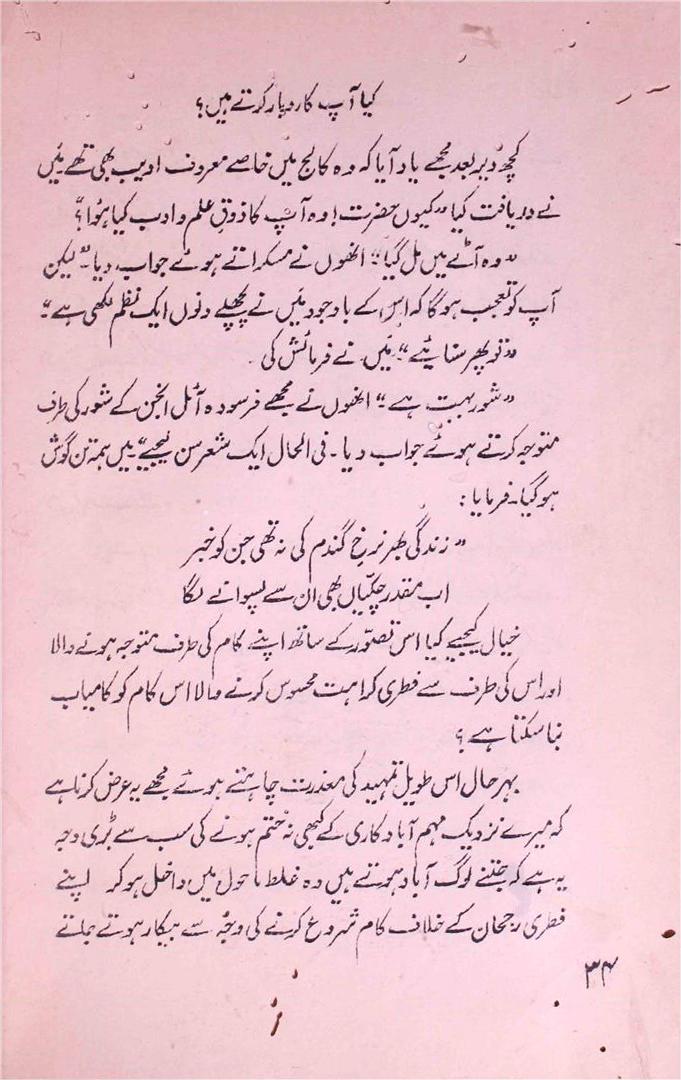 کیا آپ کاروبار کرتے ہیں؟
کچھ دیر بعد مجھے یاد آیا کہ وہ کالج میں خاصے معروف ادیب بھی تھے میَں
نے دریافت کیا "کیوں حضرت! وہ آپ کا ذوقِ علم و ادب کیا ہوُا؟"
"وہ آٹے میں مل گیا" انھوں نے مسکراتے ہوئے جواب دیا۔ "لیکن
آپ کو تعجب ہوگا کہ اس کے باوجود میَں نے پچھلے دنوں ایک نظم لکھی ہے"
"تو پھر سنائیے" میَں نے فرمائش کی۔
"شور بہت ہے" انھوں نے مجھے فرسودہ آئل انجن کے شور کی طرف
متوجہ کرتے ہوئے جواب دیا۔ فی الحال ایک شعر سن لیجیے" میں ہمہ تن گوش
ہوگیا۔ فرمایا:
"زندگی بھر نرخ گندم کی نہ تھی جن کو خبر
اب مقدر چکیّاں بھی ان سے پسوانے لگا
خیال کیجیے کیا اس تصوّر کے ساتھ اپنے کام کی طرف متوجہ ہونے والا
اور اس کی طرف سے فطری کراہت محسوس کرنے والا اس کام کو کامیاب
بنا سکتا ہے؟
بہر حال اس طویل تمہید کی معذرت چاہتے ہوئے مجھے یہ عرض کرنا ہے
کہ میرے نزدیک مہم آبادکاری کے کبھی نہ ختم ہونے کی سب سے بڑی وجہ
یہ ہے کہ جتنے لوگ آباد ہوتے ہیں وہ غلط ماحول میں داخل ہوکر اپنے
فطری رجحان کے خلاف کام شروع کرنے کی وجہ سے بیکار ہوتے جاتے
۳۴